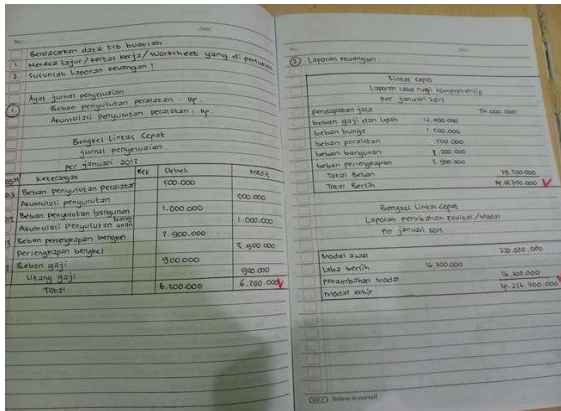 No: Date:
Berdasarkan data tsb buatlah
1. Neraca lajur/kertas kerja/worksheet yang di perlukan
2. Susunlah Laporan keuangan!
Ayat jurnal penyesuaian.
1. Beban penyusutan peralatan: Rp.
Akumulasi penyusutan peralatan: Rp.
Bengkel Lintas Cepat
Jurnal penyesuaian.
per januari 2013
Keterangan Ref Debet Kredit
Beban penyusutan peralatan 500.000
Akumulasi penyusutan 500.000
Beban penyusutan bangunan 1.000.000
Akumulasi penyusutan bangunan 1.000.000
Beban perlengkapan bengkel 3.900.000
perlengkapan bengkel 3.900.000
Beban gaji 900.000
Utang gaji 900.000
Total 6.300.000 6.300.000
No: Date:
2 Laporan keuangan.
Lintas Cepat
Laporan laba rugi komprehensif
per januari 2013
pendapatan jasa
beban gaji dan upah 12.400.000
beban bunga
beban peralatan 500.000
beban bangunan 1.000.000
beban perlengkapan 3.900.000
Total Beban
Total Bersih
Bengkel Lintas Cepat
Laporan perubahan /modal
per januari 2013
Modal awal
Laba bersih 16.700.000
penambahan modal 16.700.000
modal akhir
KIKY Believe in yourself